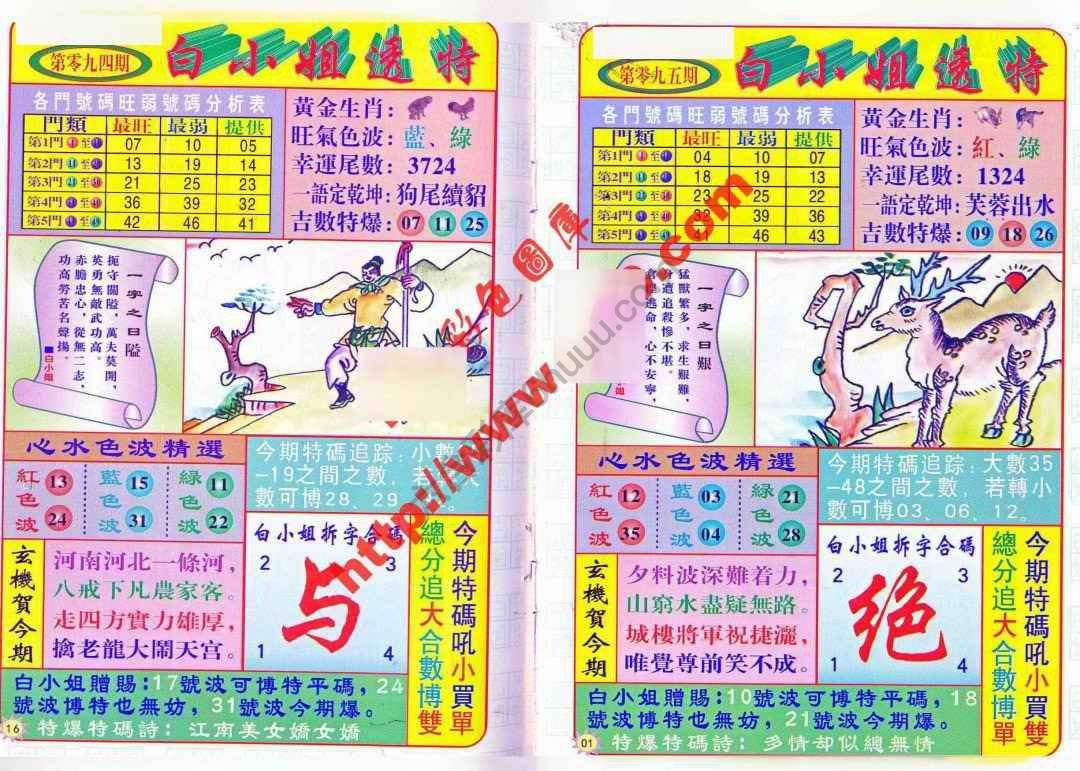 第零九四期
白小姐透特
各門號碼旺弱號碼分析表
門類 最旺 最弱 提供
第1門 至 07 10 05
第2門 至 13 19 14
第3門 至 21 25 23
第4門 至 36 39 32
第5門 至 42 46 41
黃金生肖:
旺氣色波: 藍、綠
幸運尾數: 3724
一語定乾坤: 狗尾續貂
吉數特爆: 07 11 25
一字之曰隘
扼守關隘，萬夫莫開，
英勇無敵武功高。
赤膽忠心，從無二志，
功高勞苦名聲揚。
■白小姐
心水色波精選
紅色波 13 24
藍色波 15 31
綠色波 11 22
今期特碼追踪: 小數
-19之間之數，若
數可博28、29
玄機賀今期
河南河北一條河，
八戒下凡農家客。
走四方實力雄厚，
擒老龍大鬧天宮。
白小姐拆字合碼
2 3
与
1 4
總分追大合數博雙
今期特碼吼小買單
白小姐贈賜:17號波可博特平碼，24
號波博特也無妨，31號波今期爆。
16
特爆特碼詩: 江南美女嬌女嬌
第零九五期
白小姐透特
各門號碼旺弱號碼分析表
門類 最旺 最弱 提供
第1門 至 04 10 07
第2門 至 18 19 13
第3門 至 23 25 22
第4門 至 32 39 36
第5門 至 46 43
黃金生肖:
旺氣色波: 紅、綠
幸運尾數: 1324
一語定乾坤: 芙蓉出水
吉數特爆: 09 18 26
一字之曰艱
猛獸繁多，求生艱難，
分遭追殺慘不堪。
逃命，心不安寧，
心水色波精選
紅色波 12 35
藍色波 03 04
綠色波 21 28
今期特碼追踪: 大數35
-48之間之數，若轉小
數可博03、06、12。
玄機賀今期
夕料波深難着力，
山窮水盡疑無路。
城樓將軍祝捷灑，
唯覺尊前笑不成。
白小姐拆字合碼
2 3
绝
1 4
總分追大合數博單
今期特碼吼小買單
白小姐贈賜:10號波可博特平碼，18
號波博特也無妨，21號波今期爆。
01
特爆特碼詩: 多情却似總無情
彩色圖庫
http://www
.com